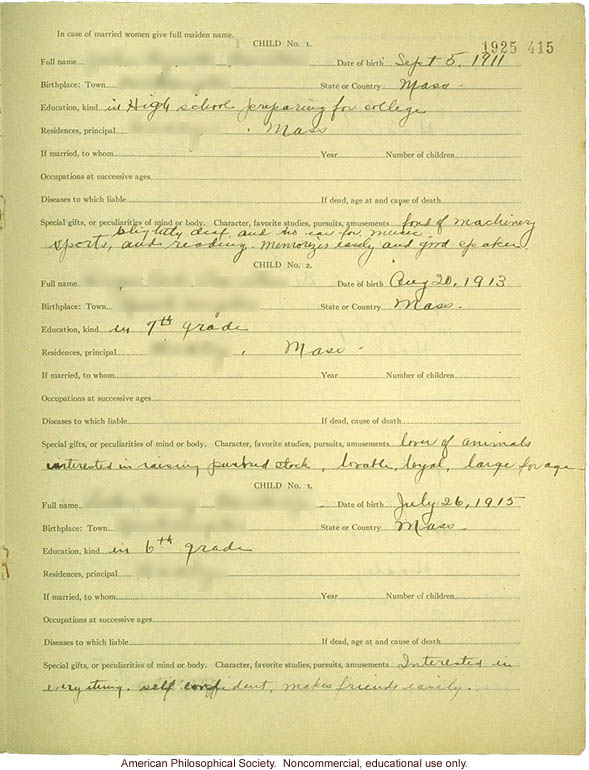 In case of married women give full maiden name.
CHILD No. 1.
1925 415
Full name Date of birth Sept 5, 1911
Birthplace: Town State or Country Mass -
Education, kind in High school preparing for college
Residences, principal Mass
If married, to whom Year Number of children
Occupations at successive ages
Diseases to which liable If dead, age at and cause of death
Special gifts, or peculiarities of mind or body. Character, favorite studies, pursuits, amusements fond of machinery
slightly deaf and no ear for music.
sports, and reading. Memorizes easily and good speaker.
CHILD No. 2.
Full name Date of birth Aug 20, 1913
Birthplace: Town State or Country Mass.
Education, kind in 7th grade
Residences, principal , Mass -
If married, to whom Year Number of children
Occupations at successive ages
Diseases to which liable If dead, cause of death
Special gifts, or peculiarities of mind or body. Character, favorite studies, pursuits, amusements lover of animals
interested in raising purebred stock, lovable, loyal, large for age -
CHILD No. 3.
Full name Date of birth July 26, 1915
Birthplace: Town State or Country Mass.
Education, kind in 6th grade
Residences, principal
If married, to whom Year Number of children
Occupations at successive ages
Diseases to which liable If dead, age at and cause of death
Special gifts, or peculiarities of mind or body. Character, favorite studies, pursuits, amusements Interested in
everything. self confident, makes friends easily.
American Philosophical Society. Noncommercial, educational use only.